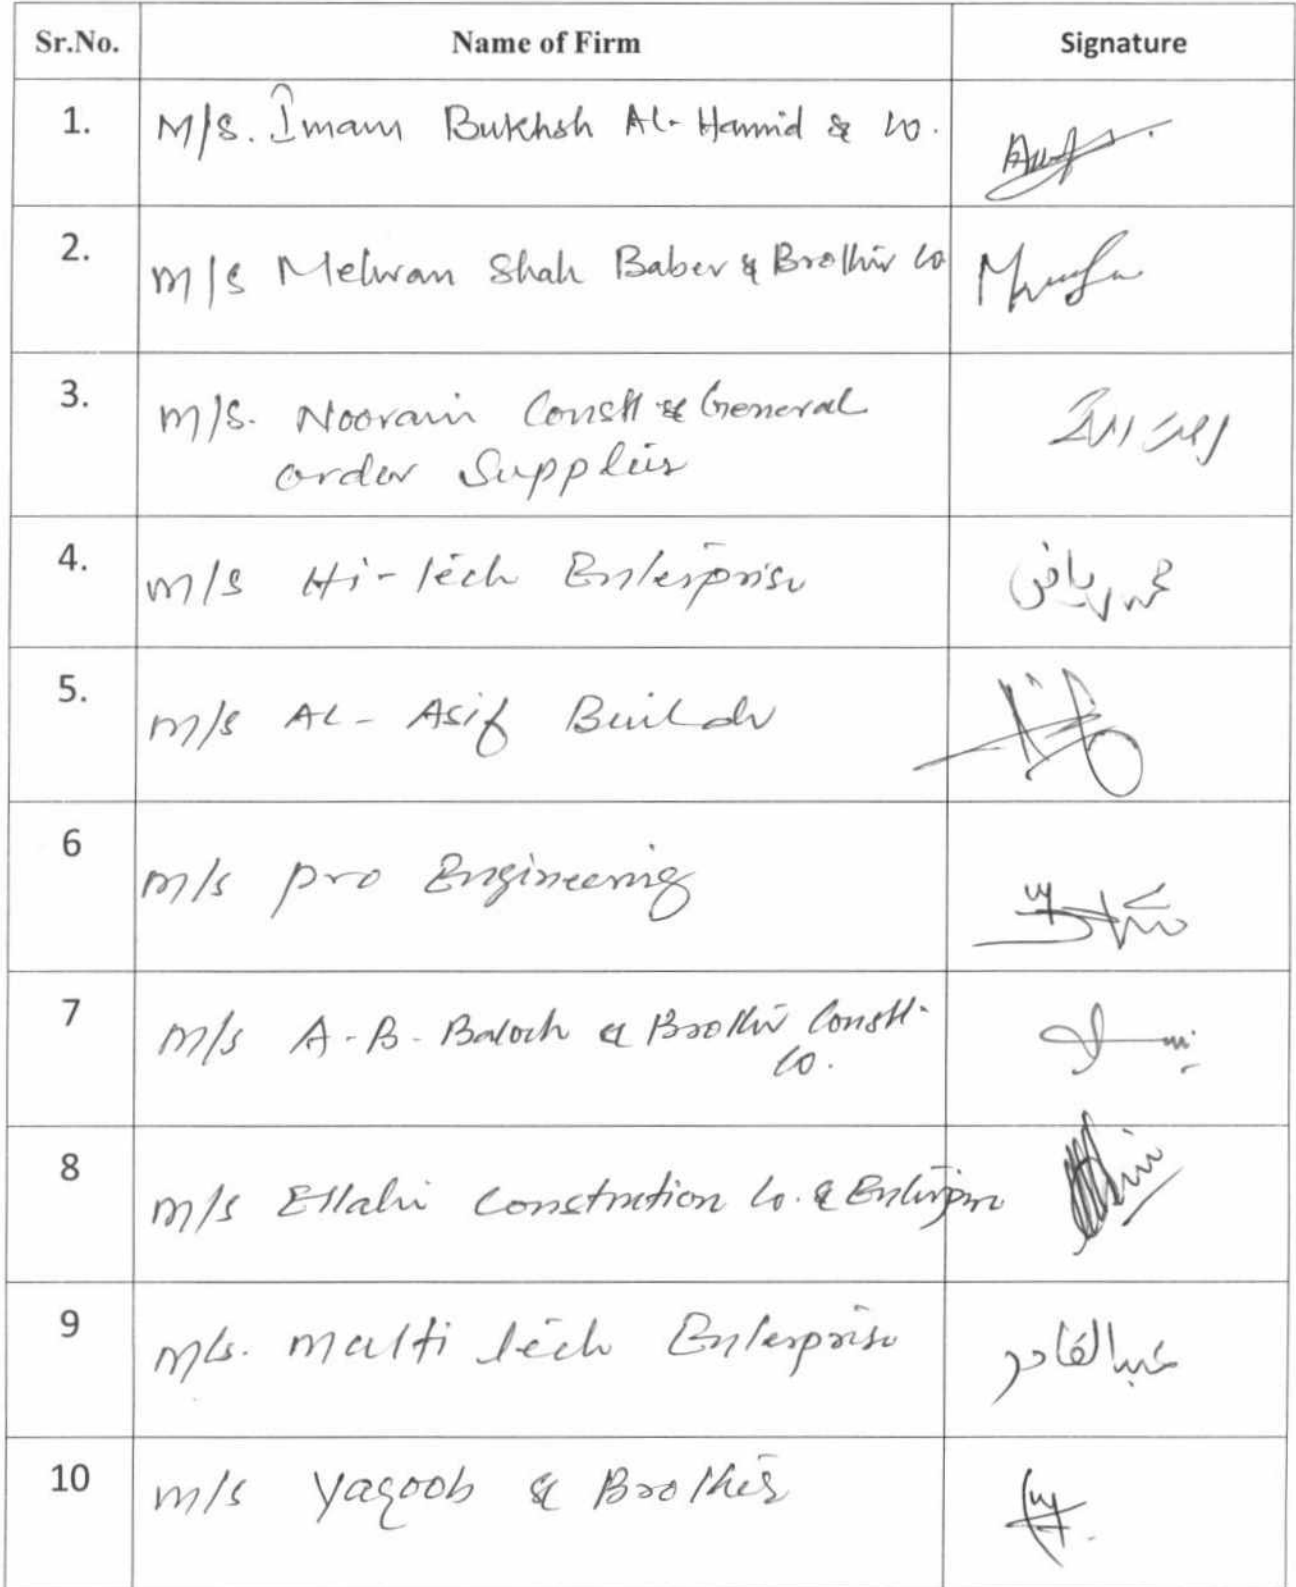 Sr.No. Name of Firm Signature
1. M/S. Imam Bukhsh Al-Hamid & Co.
2. M/S Mehran Shah Baber & Brother Co
3. M/S. Noorain Constt & General
order Suppliers
4. M/S Hi-Tech Enterprise محمد ریاض
5. M/S AL-Asif Builder
6 M/S Pro Engineering
7 M/S A.B. Baloch & Brother Constt.
Co.
8 M/S Ellahi Construction Co. & Enterprise
9 M/S. Malti Tech Enterprise عبدالقادر
10 M/S Yaqoob & Brothers